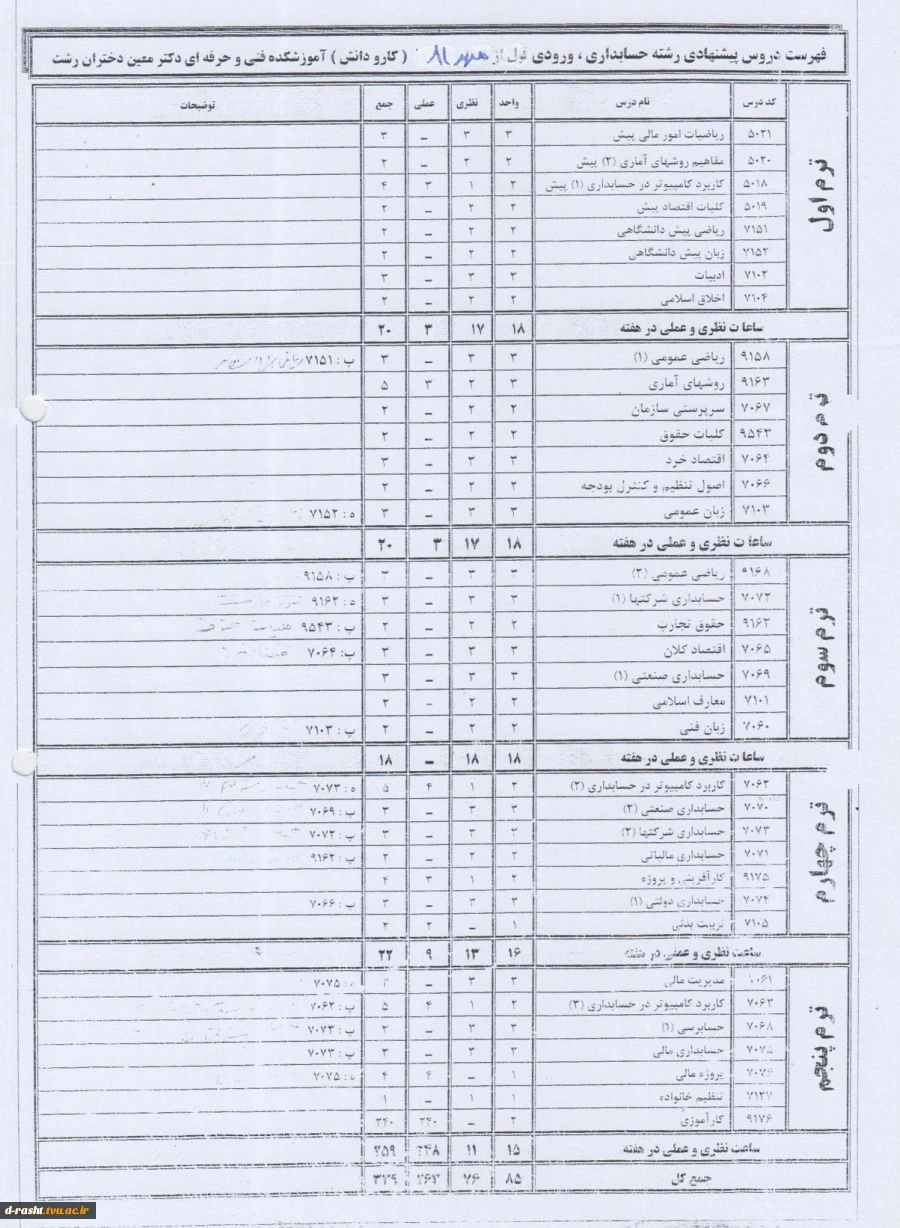 فهرست دروس پیشنهادی رشته حسابداری ، ورودی قبل از مهر ۸۱ ( کارو دانش ) آموزشکده فنی و حرفه ای دکتر معین دختران رشت
کد درس نام درس واحد نظری عملی جمع توضیحات
ترم اول
۵۰۲۱ ریاضیات امور مالی پیش ۳ ۳ – ۳
۵۰۲۰ مفاهیم روشهای آماری (۲) پیش ۲ ۲ – ۲
۵۰۱۸ کاربرد کامپیوتر در حسابداری (۱) پیش ۲ ۱ ۳ ۴
۵۰۱۹ کلیات اقتصاد پیش ۲ ۲ – ۲
۷۱۵۱ ریاضی پیش دانشگاهی ۲ ۲ – ۲
۷۱۵۲ زبان پیش دانشگاهی ۲ ۲ – ۲
۷۱۰۲ ادبیات ۳ ۳ – ۳
۷۱۰۴ اخلاق اسلامی ۲ ۲ – ۲
ساعات نظری و عملی در هفته ۱۸ ۱۷ ۳ ۲۰
ترم دوم
۹۱۵۸ ریاضی عمومی (۱) ۳ ۳ – ۳ پ : ۷۱۵۱
۹۱۶۳ روشهای آماری ۳ ۲ ۳ ۵
۷۰۶۷ سرپرستی سازمان ۲ ۲ – ۲
۹۵۴۳ کلیات حقوق ۲ ۲ – ۲
۷۰۶۴ اقتصاد خرد ۳ ۳ – ۳
۷۰۶۶ اصول تنظیم و کنترل بودجه ۲ ۲ – ۲
۷۱۰۳ زبان عمومی ۳ ۳ – ۳ ه : ۷۱۵۲
ساعات نظری و عملی در هفته ۱۸ ۱۷ ۳ ۲۰
ترم سوم
۹۱۶۸ ریاضی عمومی (۲) ۳ ۳ – ۳ پ : ۹۱۵۸
۷۰۷۲ حسابداری شرکتها (۱) ۳ ۳ – ۳ ه : ۹۱۶۲
۹۱۶۲ حقوق تجارت ۲ ۲ – ۲ پ : ۹۵۴۳
۷۰۶۵ اقتصاد کلان ۳ ۳ – ۳ پ : ۷۰۶۴
۷۰۶۹ حسابداری صنعتی (۱) ۳ ۳ – ۳
۷۱۰۱ معارف اسلامی ۲ ۲ – ۲
۷۰۶۰ زبان فنی ۲ ۲ – ۲ پ : ۷۱۰۳
ساعات نظری و عملی در هفته ۱۸ ۱۸ – ۱۸
ترم چهارم
۷۰۶۲ کاربرد کامپیوتر در حسابداری (۲) ۲ ۱ ۴ ۵ ه : ۷۰۷۳
۷۰۷۰ حسابداری صنعتی (۲) ۳ ۳ – ۳ پ : ۷۰۶۹
۷۰۷۳ حسابداری شرکتها (۲) ۳ ۳ – ۳ پ : ۷۰۷۲
۷۰۷۱ حسابداری مالیاتی ۲ ۲ – ۲ پ : ۹۱۶۲
۹۱۷۵ کارآفرینی و پروژه ۲ ۱ ۳ ۴
۷۰۷۴ حسابداری دولتی (۱) ۳ ۳ – ۳ پ : ۷۰۶۶
۷۱۰۵ تربیت بدنی ۱ – ۲ ۲
ساعت نظری و عملی در هفته ۱۶ ۱۳ ۹ ۲۲
ترم پنجم
مدیریت مالی ۳ ۳ – ۷۰۷۵
۷۰۶۳ کاربرد کامپیوتر در حسابداری (۳) ۲ ۱ ۴ ۵ پ : ۷۰۶۲
۷۰۶۸ حسابرسی (۱) ۳ ۳ – پ : ۷۰۷۳
۷۰۷۵ حسابداری مالی ۳ ۳ – ۳ پ : ۷۰۷۳
۷۰۷۶ پروژه مالی ۱ – ۴ ۴ ه : ۷۰۷۵
۷۱۲۷ تنظیم خانواده ۱ ۱ – ۱
۹۱۷۶ کارآموزی ۲ – ۲۴۰ ۲۴۰
ساعت نظری و عملی در هفته ۱۵ ۱۱ ۲۴۸ ۲۵۹
جمع کل ۸۵ ۷۶ ۲۶۳ ۳۳۹
d-rasht.tvu.ac.ir